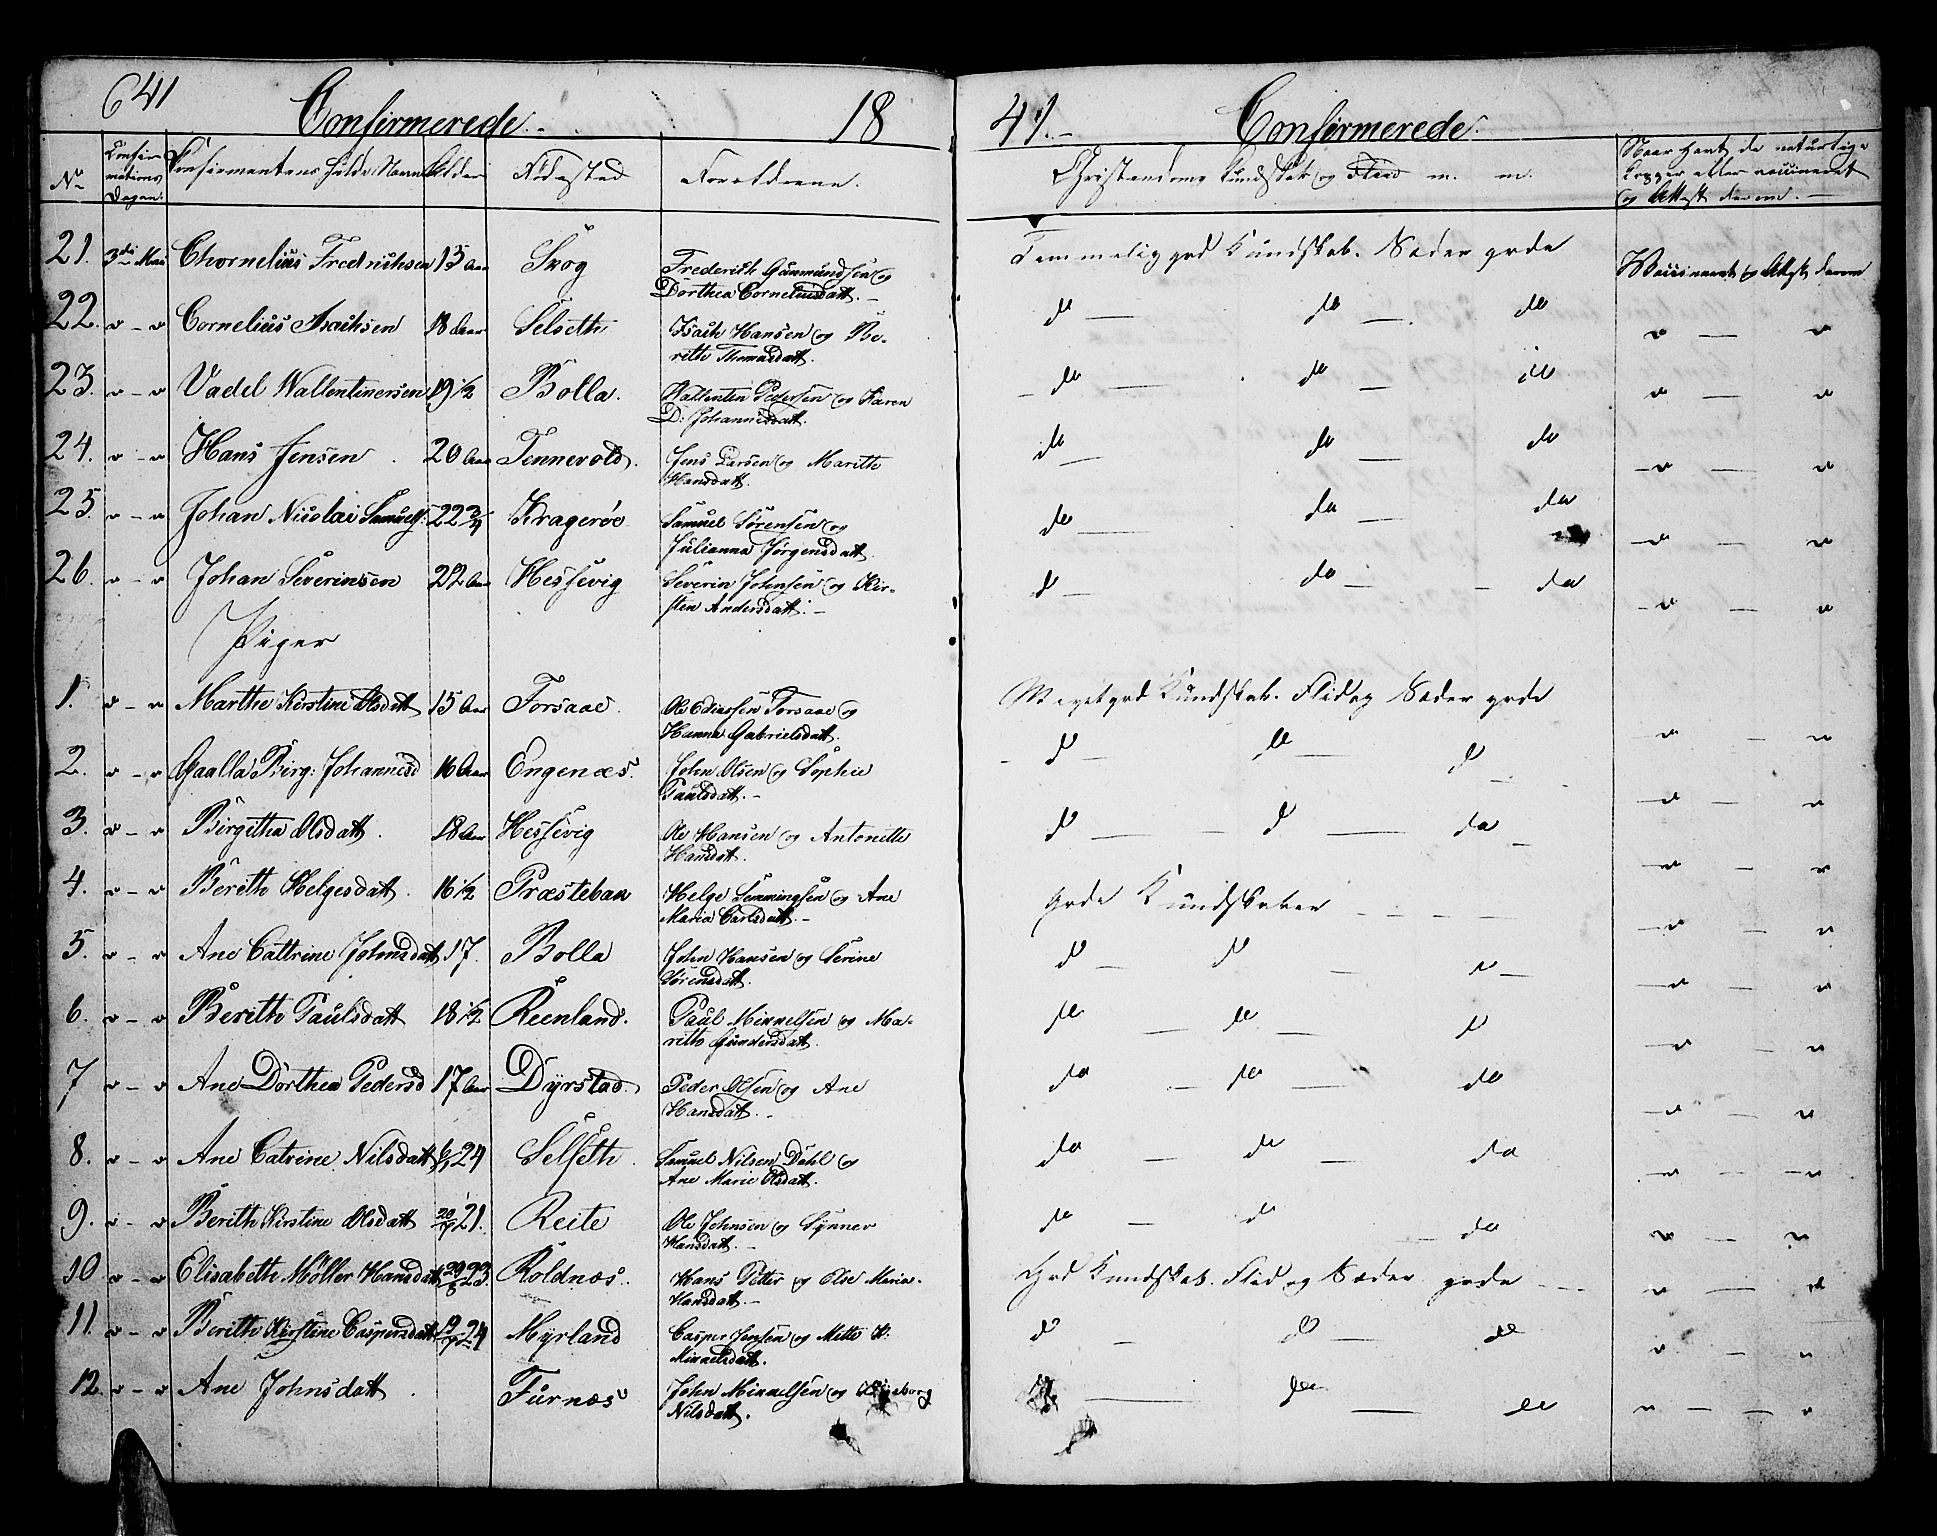 641
Confirmerede.
18
41.
Confirmerede.
No Confirmations Dagen. Confirmantens fulde Navn Alder Fødested Forældrene. Christendoms Kundskab og Flid m. m. Naar havt de naturlige
Kopper eller vaccineret
og Attest derom.
21. 3die Mai Chornelius Fredrichsen 15 Aar Skog Frederich Gunmundsen og
Dorthea Corneliusdatt. Temmelig god Kundskab. Sæder gode Vaccineret og Attest derom
22. " - " Cornelius Isachsen 18 Aar Selseth Isach Hansen og Be-
rith Thomasdatt. do — do — do " — "
23. " - " Vadel Wallentinersen 19 1/2 Bolla. Wallenten Pedersen og Karen
D: Johannesdatt. do — do do " — "
24. " - " Hans Jensen 20 Aar Tennevold. Jens Larsen og Marith
Hansdatt. do — do — do " — "
25. " - " Johan Nicolai Samuels: 22 3/4 Kragerøe Samuel Sørensen og
Julianna Jørgensdatt do — do — do " — "
26. " - " Johan Severinsen 22 Aar Hessevig Severin Johnsen og Kir-
sten Andersdatt. do — do — do " — "
Piger
1. " - " Marthe Kirstine Olsdatt 15 Aar Forsaae. Ole Ediassen Forsaae og
Hanna Gabrielsdatt. Meget god Kundskab. Flid og Sæder gode " — "
2. " - " Gaalla Birg: Johannesd 16 Aar Engenæs. John Olsen og Sophie
Paulsdatt. do — do — do " — "
3. " - " Birgitha Olsdatt. 18 Aar Hessevig Ole Hansen og Antonette
Hansdatt. do — do — do " — "
4. " - " Berith Helgesdatt. 16 1/2 Præsteban Helge Semmingsen og Ane
Maria Carlsdatt. gode Kundskaber " — "
5. " - " Ane Cattrine Johnsdatt 17. Bolla John Hansen og Serine
Sørensdatt. do — do — " — " — "
6. " - " Berith Paulsdatt 18 1/2 Reenland. Paul Mikkelsen og Ma-
rith Gundersdatt. do — do — do " — "
7 " - " Ane Dorthea Pedersd 17 Aar Dyrstad. Peder Olsen og Ane
Hansdatt. do — do — do " — "
8. " - " Ane Catrine Nilsdatt 24 Selseth. Samuel Nilsen Dahl og
Ane Marie Olsdatt. do — do — do " — "
9. " - " Berith Kirstine Olsdatt 21. Reite Ole Johnsen og Synnev
Hansdatt. do — do — do " — "
10 " - " Elisabeth Möller Hansdatt 23. Roldnæs. Hans Petter og Else Maria
Hansdatt. God Kundskab. Flid og Sæder gode " — "
11. " - " Berith Kirstine Caspersdatt 24 Myrland Casper Jensen og Mette K:
Mikkelsdatt. do — do — do " — "
12. " - " Ane Johnsdatt Furnæs John Mikkelsen og
Nilsdatt. do — do — do " — "